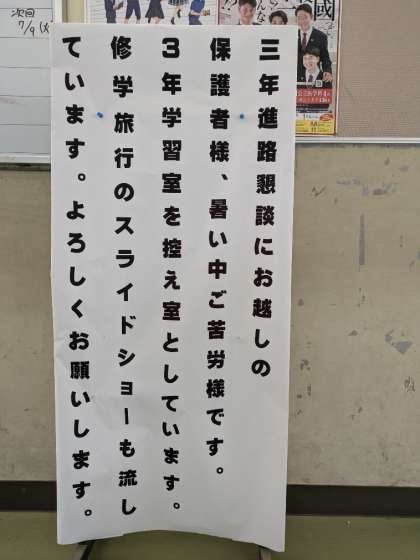 三年進路懇談にお越しの
保護者様、暑い中ご苦労様です。
３年学習室を控え室としています。
修学旅行のスライドショーも流し
ています。よろしくお願いします。
次回
7/9(火)
國